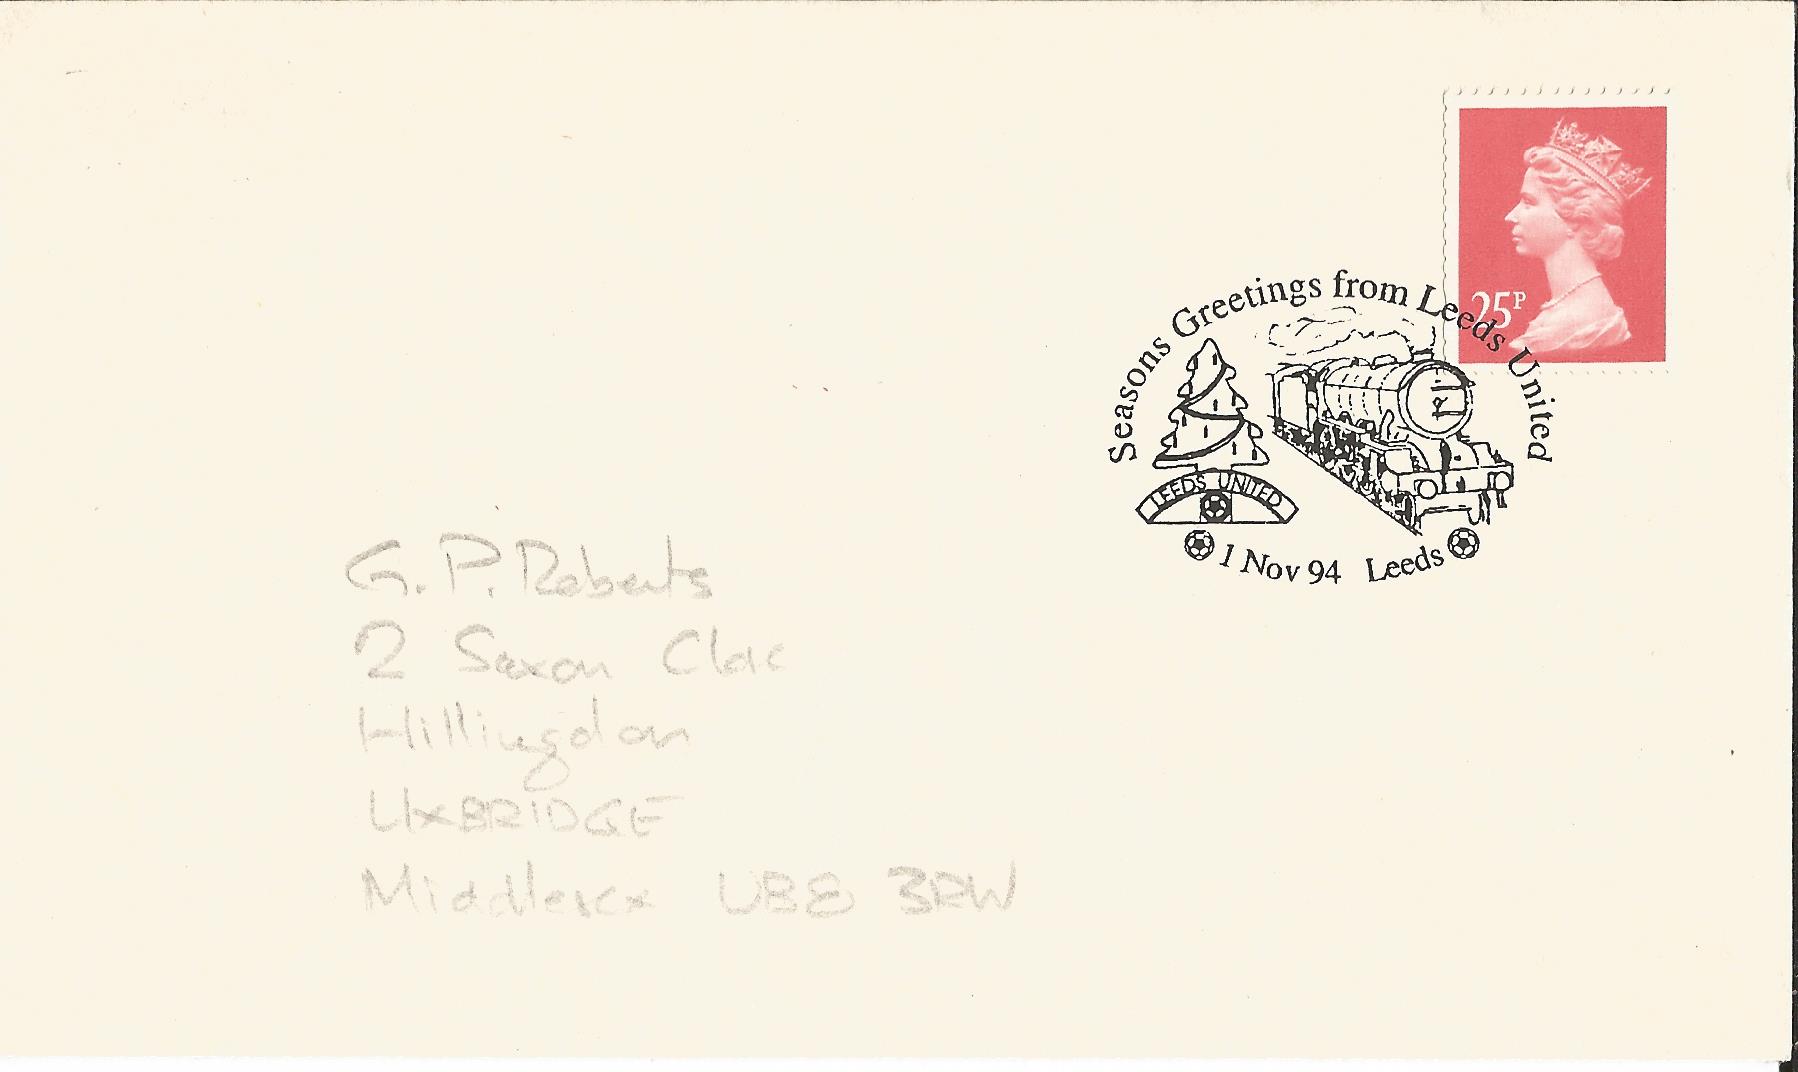 25P
Seasons Greetings from Leeds United
LEEDS UNITED
1 Nov 94 Leeds
G. P. Roberts
2 Saxon Close
Hillingdon
UXBRIDGE
Middlesex UB8 3RW